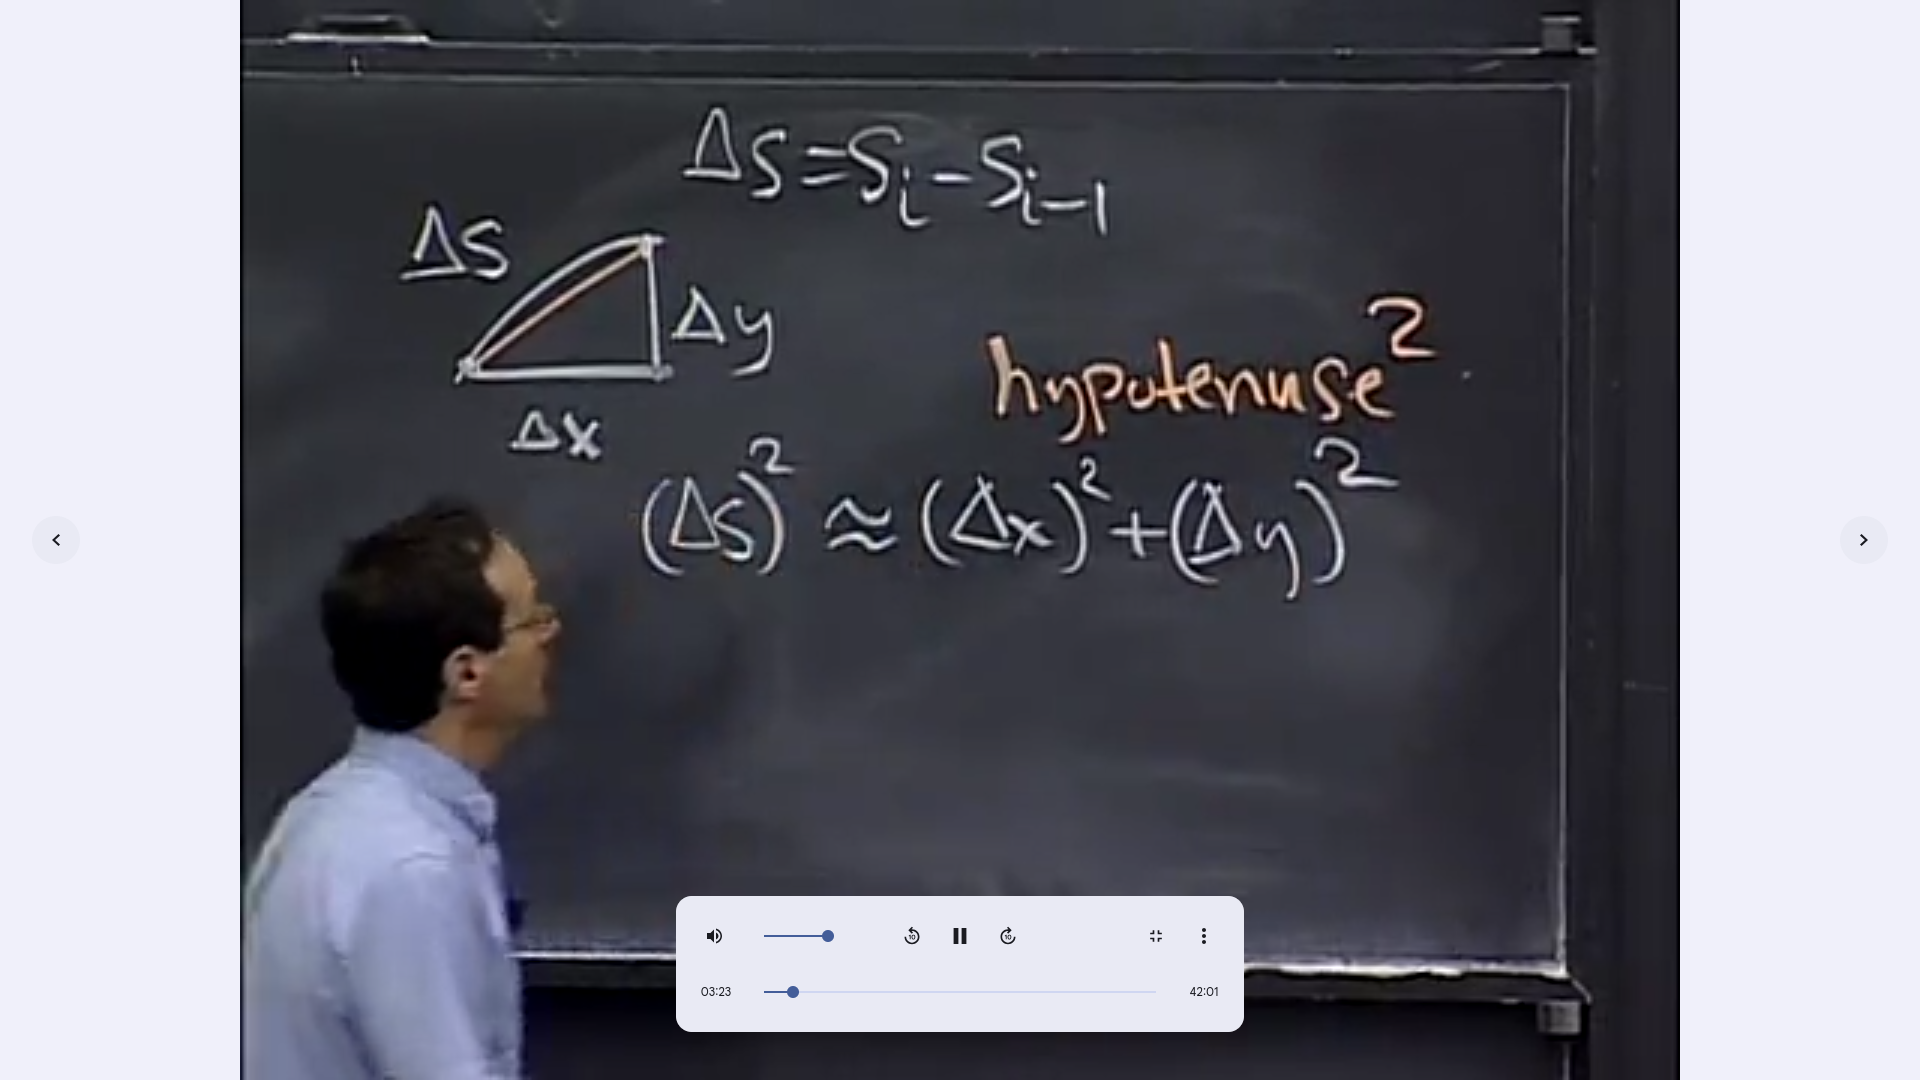 Δs = Sᵢ − Sᵢ₋₁
Δs
Δy
Δx
hypotenuse²
(Δs)² ≈ (Δx)² + (Δy)²
10
10
03:23
42:01